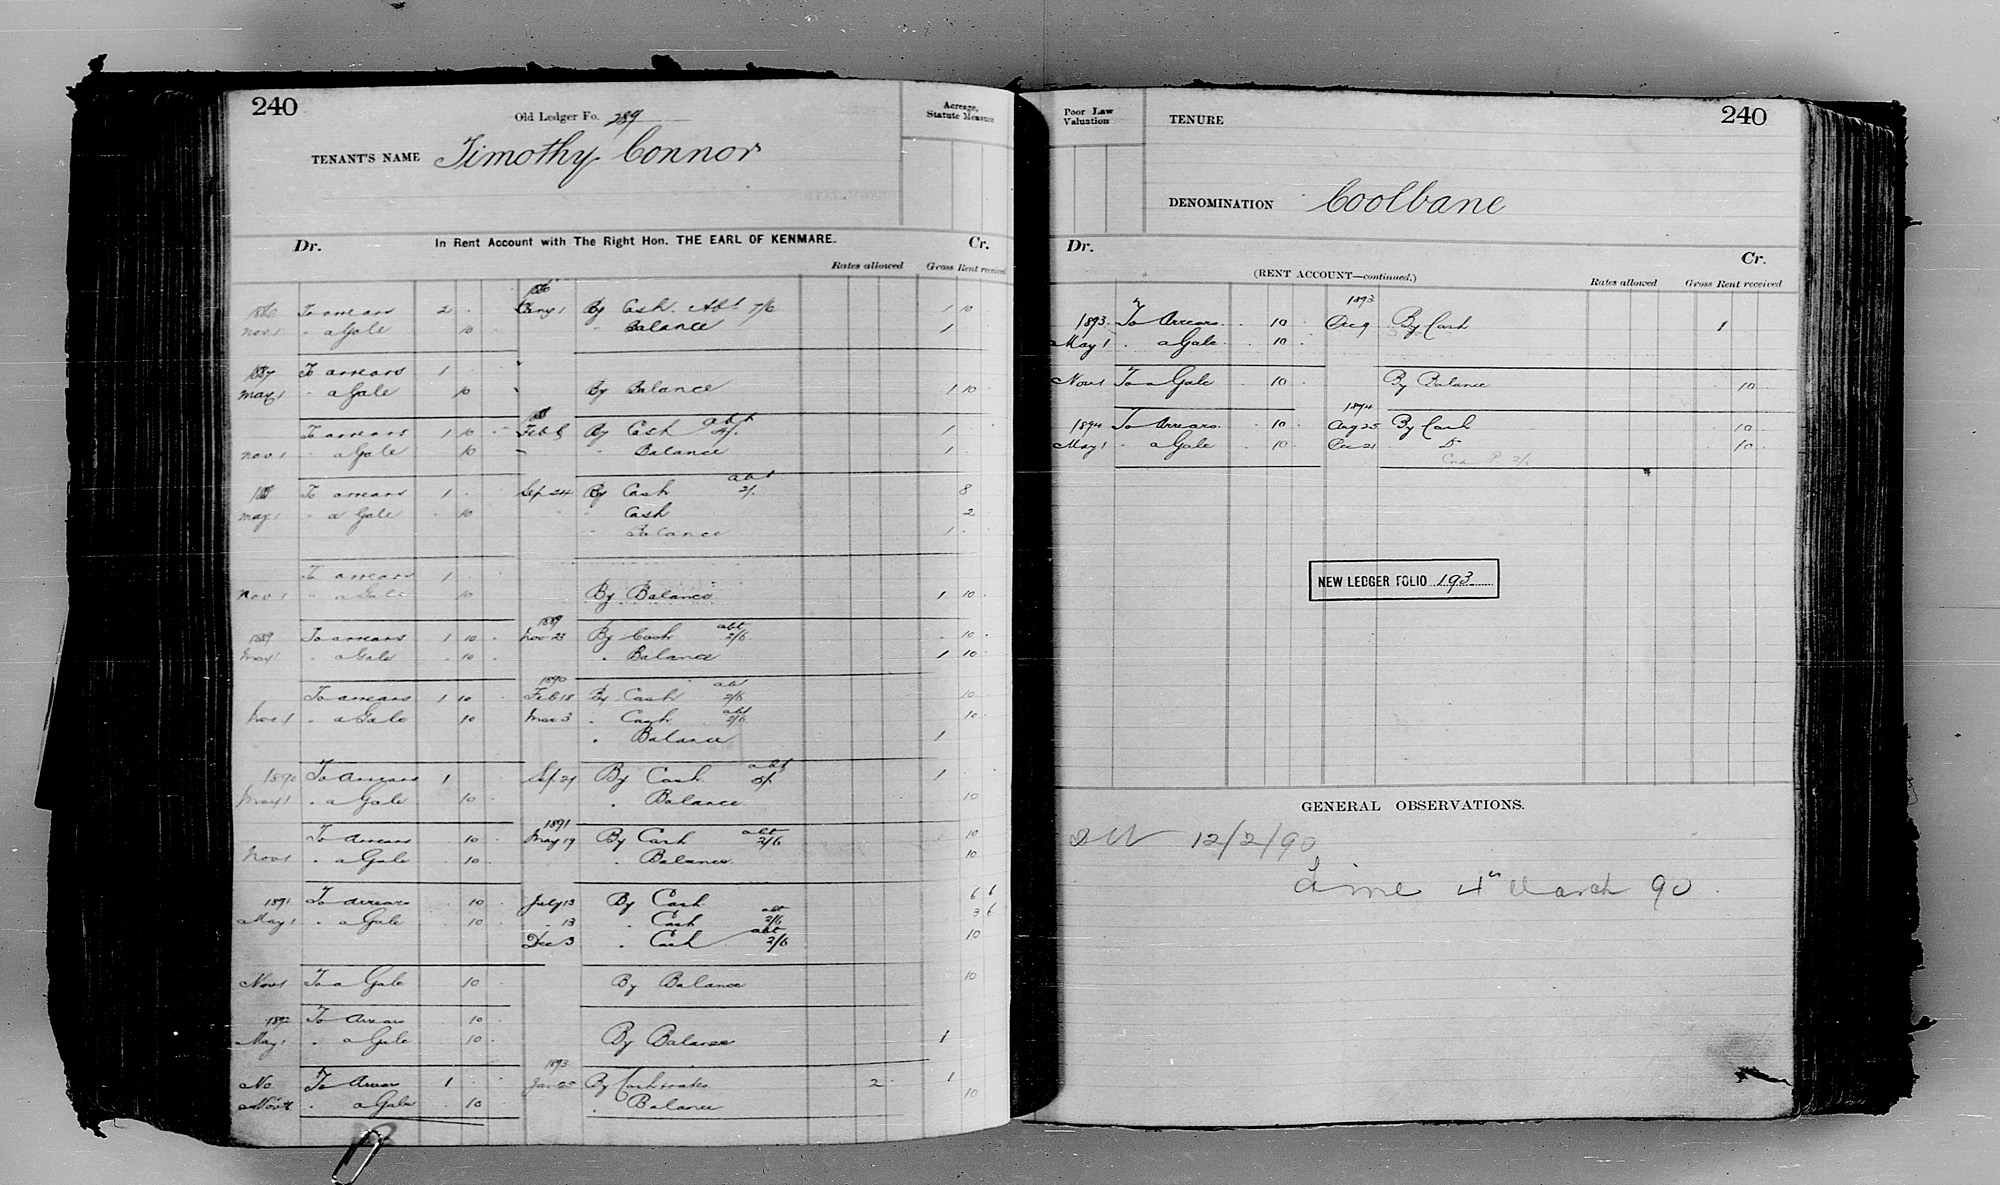 240
Old Ledger Fo. 289
Acreage, Statute Measure
TENANT'S NAME Timothy Connor
Dr. In Rent Account with The Right Hon. THE EARL OF KENMARE. Cr.
Rates allowed Gross Rent received
1886
1886 To arrears 2 By Cash. Abt 7/6 1 10
Nov 1 " a Gale 10 " Balance 1
1887 To arrears 1
May 1 " a Gale 10 By Balance 1 10
To arrears 1 10 Feb By Cash abt 1
Nov 1 " a Gale 10 " Balance 1
To arrears 1 Sep 24 By Cash abt 2/. 8
May 1 " a Gale 10 Cash 2
" Balance 1
To arrears 1
Nov 1 " a Gale 10 By Balance 1 10
1889
1889 To arrears 1 10 Nov 23 By Cash abt 2/6 10
May 1 " a Gale 10 " Balance 1 10
1890
To arrears 1 10 Feb 18 By Cash abt 2/6 10
Nov 1 " a Gale 10 Mar 3 " Cash abt 2/6 10
" Balance 1
1890 To Arrears 1 Sep 29 By Cash abt 5/. 1
May 1 " a Gale 10 " Balance 10
1891
To Arrears 10 May 19 By Cash abt 2/6 10
Nov 1 " a Gale 10 " Balance 10
1891 To Arrears 10 July 13 By Cash 6 6
May 1 " a Gale 10 " 13 " Cash abt 2/6 3 6
Dec 3 " Cash abt 2/6 10
Nov 1 To a Gale 10 By Balance 10
1892 To Arrears 10
May 1 " a Gale 10 By Balance 1
1893
To Arrear 1 Jan 25 By Cash & rates 2 1
Nov 1 " a Gale 10 " Balance 10
Poor Law Valuation
TENURE
240
DENOMINATION Coolbane
Dr. Cr.
(RENT ACCOUNT—continued.)
Rates allowed Gross Rent received
1893
1893 To Arrears 10 Dec 9 By Cash 1
May 1 " a Gale 10
Nov 1 To a Gale 10 By Balance 10
1894
1894 To Arrears 10 Aug 25 By Cash 10
May 1 " a Gale 10 Dec 21 Do 10
NEW LEDGER FOLIO 193
GENERAL OBSERVATIONS.
12/2/90
Time 4th March 90